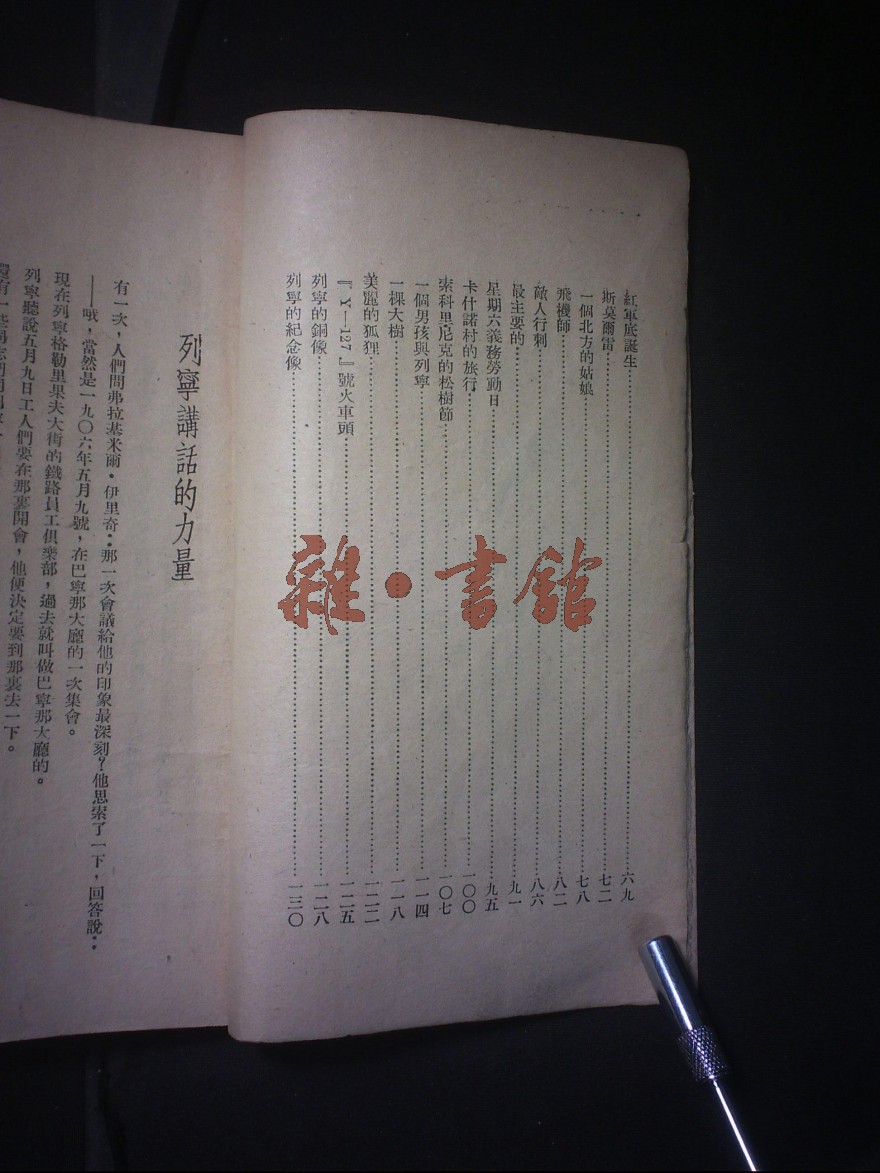 紅軍底誕生……六九
斯莫爾雷……七二
一個北方的姑娘……七八
飛機師……八二
敵人行刺……八六
最主要的……九一
星期六義務勞動日……九五
卡什諾村的旅行……一〇〇
索科里尼克的松樹節……一〇七
一個男孩與列寧……一一四
一棵大樹……一一八
美麗的狐狸……一二二
『Y—127』號火車頭……一二五
列寧的銅像……一二八
列寧的紀念像……一三〇
雜·書館
列寧講話的力量
有一次，人們問弗拉基米爾·伊里奇：那一次會議給他的印象最深刻？他思索了一下，回答說：
——哦，當然是一九〇六年五月九號，在巴寧那大廳的一次集會。
現在列寧格勒里果夫大街的鐵路員工俱樂部，過去就叫做巴寧那大廳的。
列寧聽說五月九日工人們要在那裏開會，他便決定要到那裏去一下。
還有一些